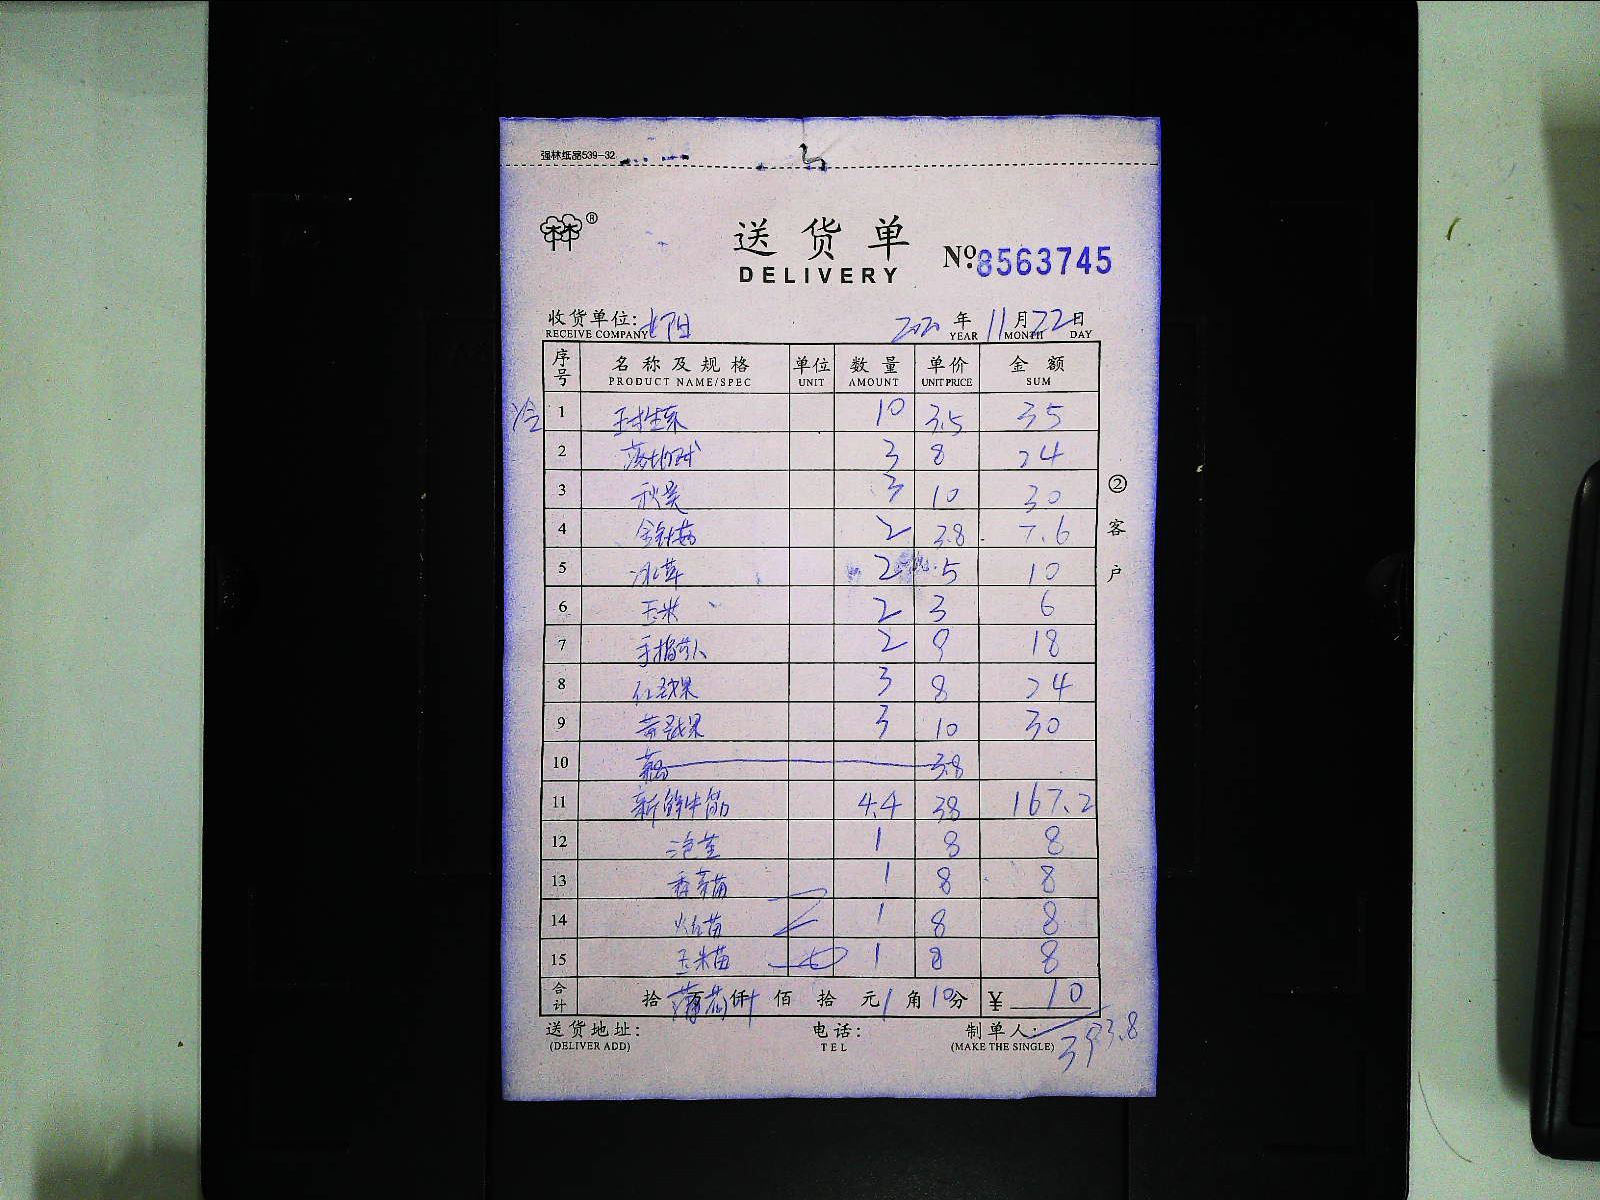 强林纸品539-32
®
送货单
DELIVERY
№:8563745
收货单位:
RECEIVE COMPANY
2020年11月22日
YEAR MONTH DAY
序号 名称及规格 单位 数量 单价 金额
PRODUCT NAME/SPEC UNIT AMOUNT UNIT PRICE SUM
冷 1 10 3.5 35
2 3 8 24
3 秋葵 3 10 30
4 金针菇 2 3.8 7.6
5 冰草 2 5 10
6 玉米 2 3 6
7 2 9 18
8 3 8 24
9 3 10 30
10 3.8
11 新鲜牛筋 4.4 38 167.2
12 1 8 8
13 香菜苗 1 8 8
14 1 8 8
15 玉米苗 1 8 8
合计 拾 薄荷 仟 1 佰 拾 元 1 角 10 分 ¥ 10
393.8
送货地址: 电话: 制单人:
(DELIVER ADD) TEL (MAKE THE SINGLE)
②客户